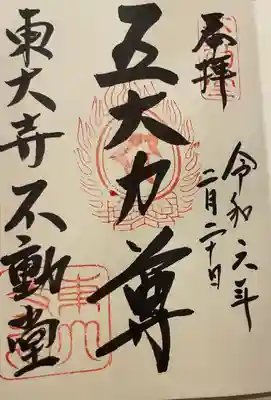 奉拝
令和六年
二月二十日
五大力尊
東大寺不動堂